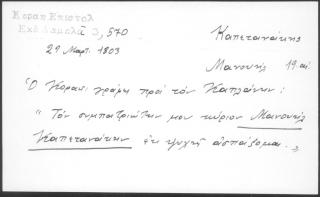 Κοραη Επιστολ
Εκδ Δαμαλᾶ 3, 570
29 Μαρτ. 1803
Καπετανάκης
Μανουήλ 19 αἰ.
Ὁ Κοραῆς γράφει πρὸς τὸν
"Τὸν συμπατριώτην μου κύριον Μανουήλ
Καπετανάκην ἐκ ψυχῆς ἀσπάζομαι."